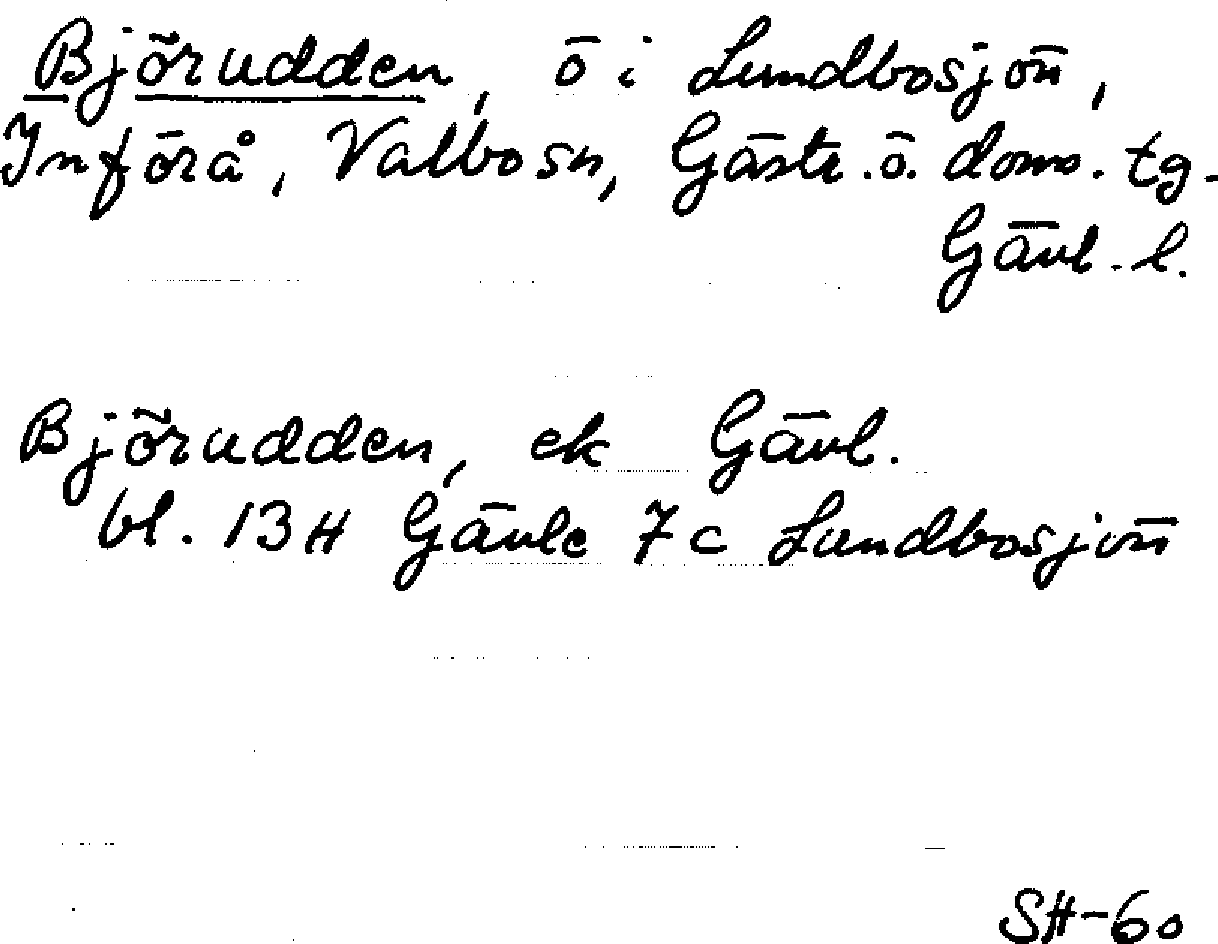 Björudden, ö i Lundbosjön,
Införå, Valbo sn, Gästr. ö. doms. tg.
Gävl. l.
Björudden, ek Gävl.
bl. 13H Gävle 7c Lundbosjön
SH-60